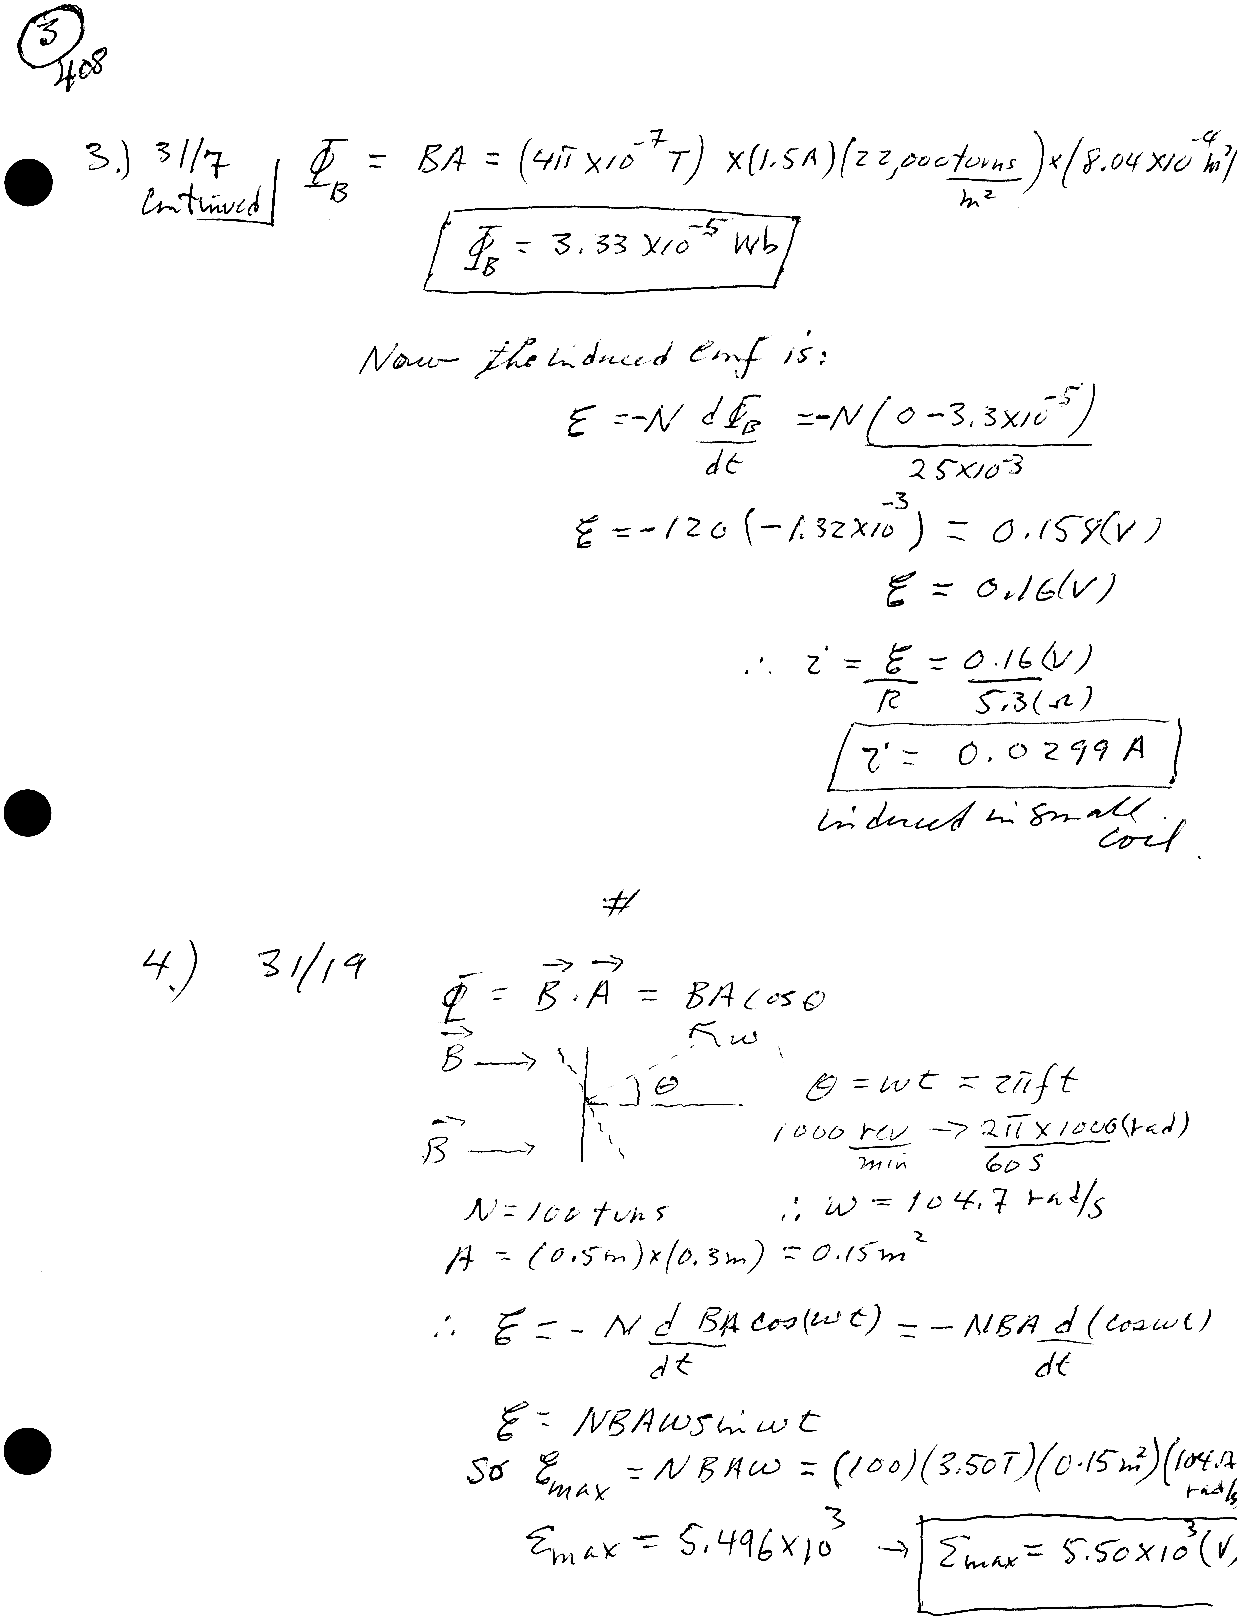 3
408
3.) 31/7 continued Φ_B = BA = (4π x10^-7 T) x(1.5A)(22,000 turns/m²)x(8.04 x10^-4 m²)
Φ_B = 3.33 x10^-5 Wb
Now the induced emf is:
ℰ = -N dΦ_B/dt = -N(0-3.3x10^-5)/25x10^-3
ℰ = -120 (-1.32x10^-3) = 0.158(V)
ℰ = 0.16(V)
∴ i = ℰ/R = 0.16(V)/5.3(Ω)
i = 0.0299 A
induced in small
coil.
#
4.) 31/19
Φ = B⃗ · A⃗ = BA cosθ
B⃗ → θ ω
θ = ωt = 2πft
B⃗ →
1000 rev/min → 2π x 1000(rad)/60 s
N = 100 turns ∴ ω = 104.7 rad/s
A = (0.5m)x(0.3m) = 0.15m²
∴ ℰ = - N d/dt BA cos(ωt) = - NBA d/dt (cosωt)
ℰ = NBAω sin ωt
so ℰmax = NBAω = (100)(3.50T)(0.15m²)(104.7 rad/s
ℰmax = 5.496x10³ → ℰmax = 5.50x10³(V)